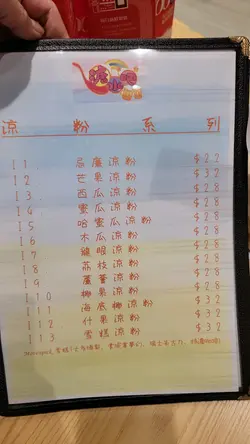 涼粉系列
I1 忌廉涼粉 $22
I2 芒果涼粉 $28
I3 西瓜涼粉 $28
I4 蜜瓜涼粉 $28
I5 哈蜜瓜涼粉 $28
I6 木瓜涼粉 $28
I7 龍眼涼粉 $28
I8 荔枝涼粉 $28
I9 蘆薈涼粉 $28
I10 椰果涼粉 $28
I11 海底椰涼粉 $32
I12 什果涼粉 $32
I13 雪糕涼粉 $32
雪糕(士多啤梨、瑞士朱古力、特濃咖啡)